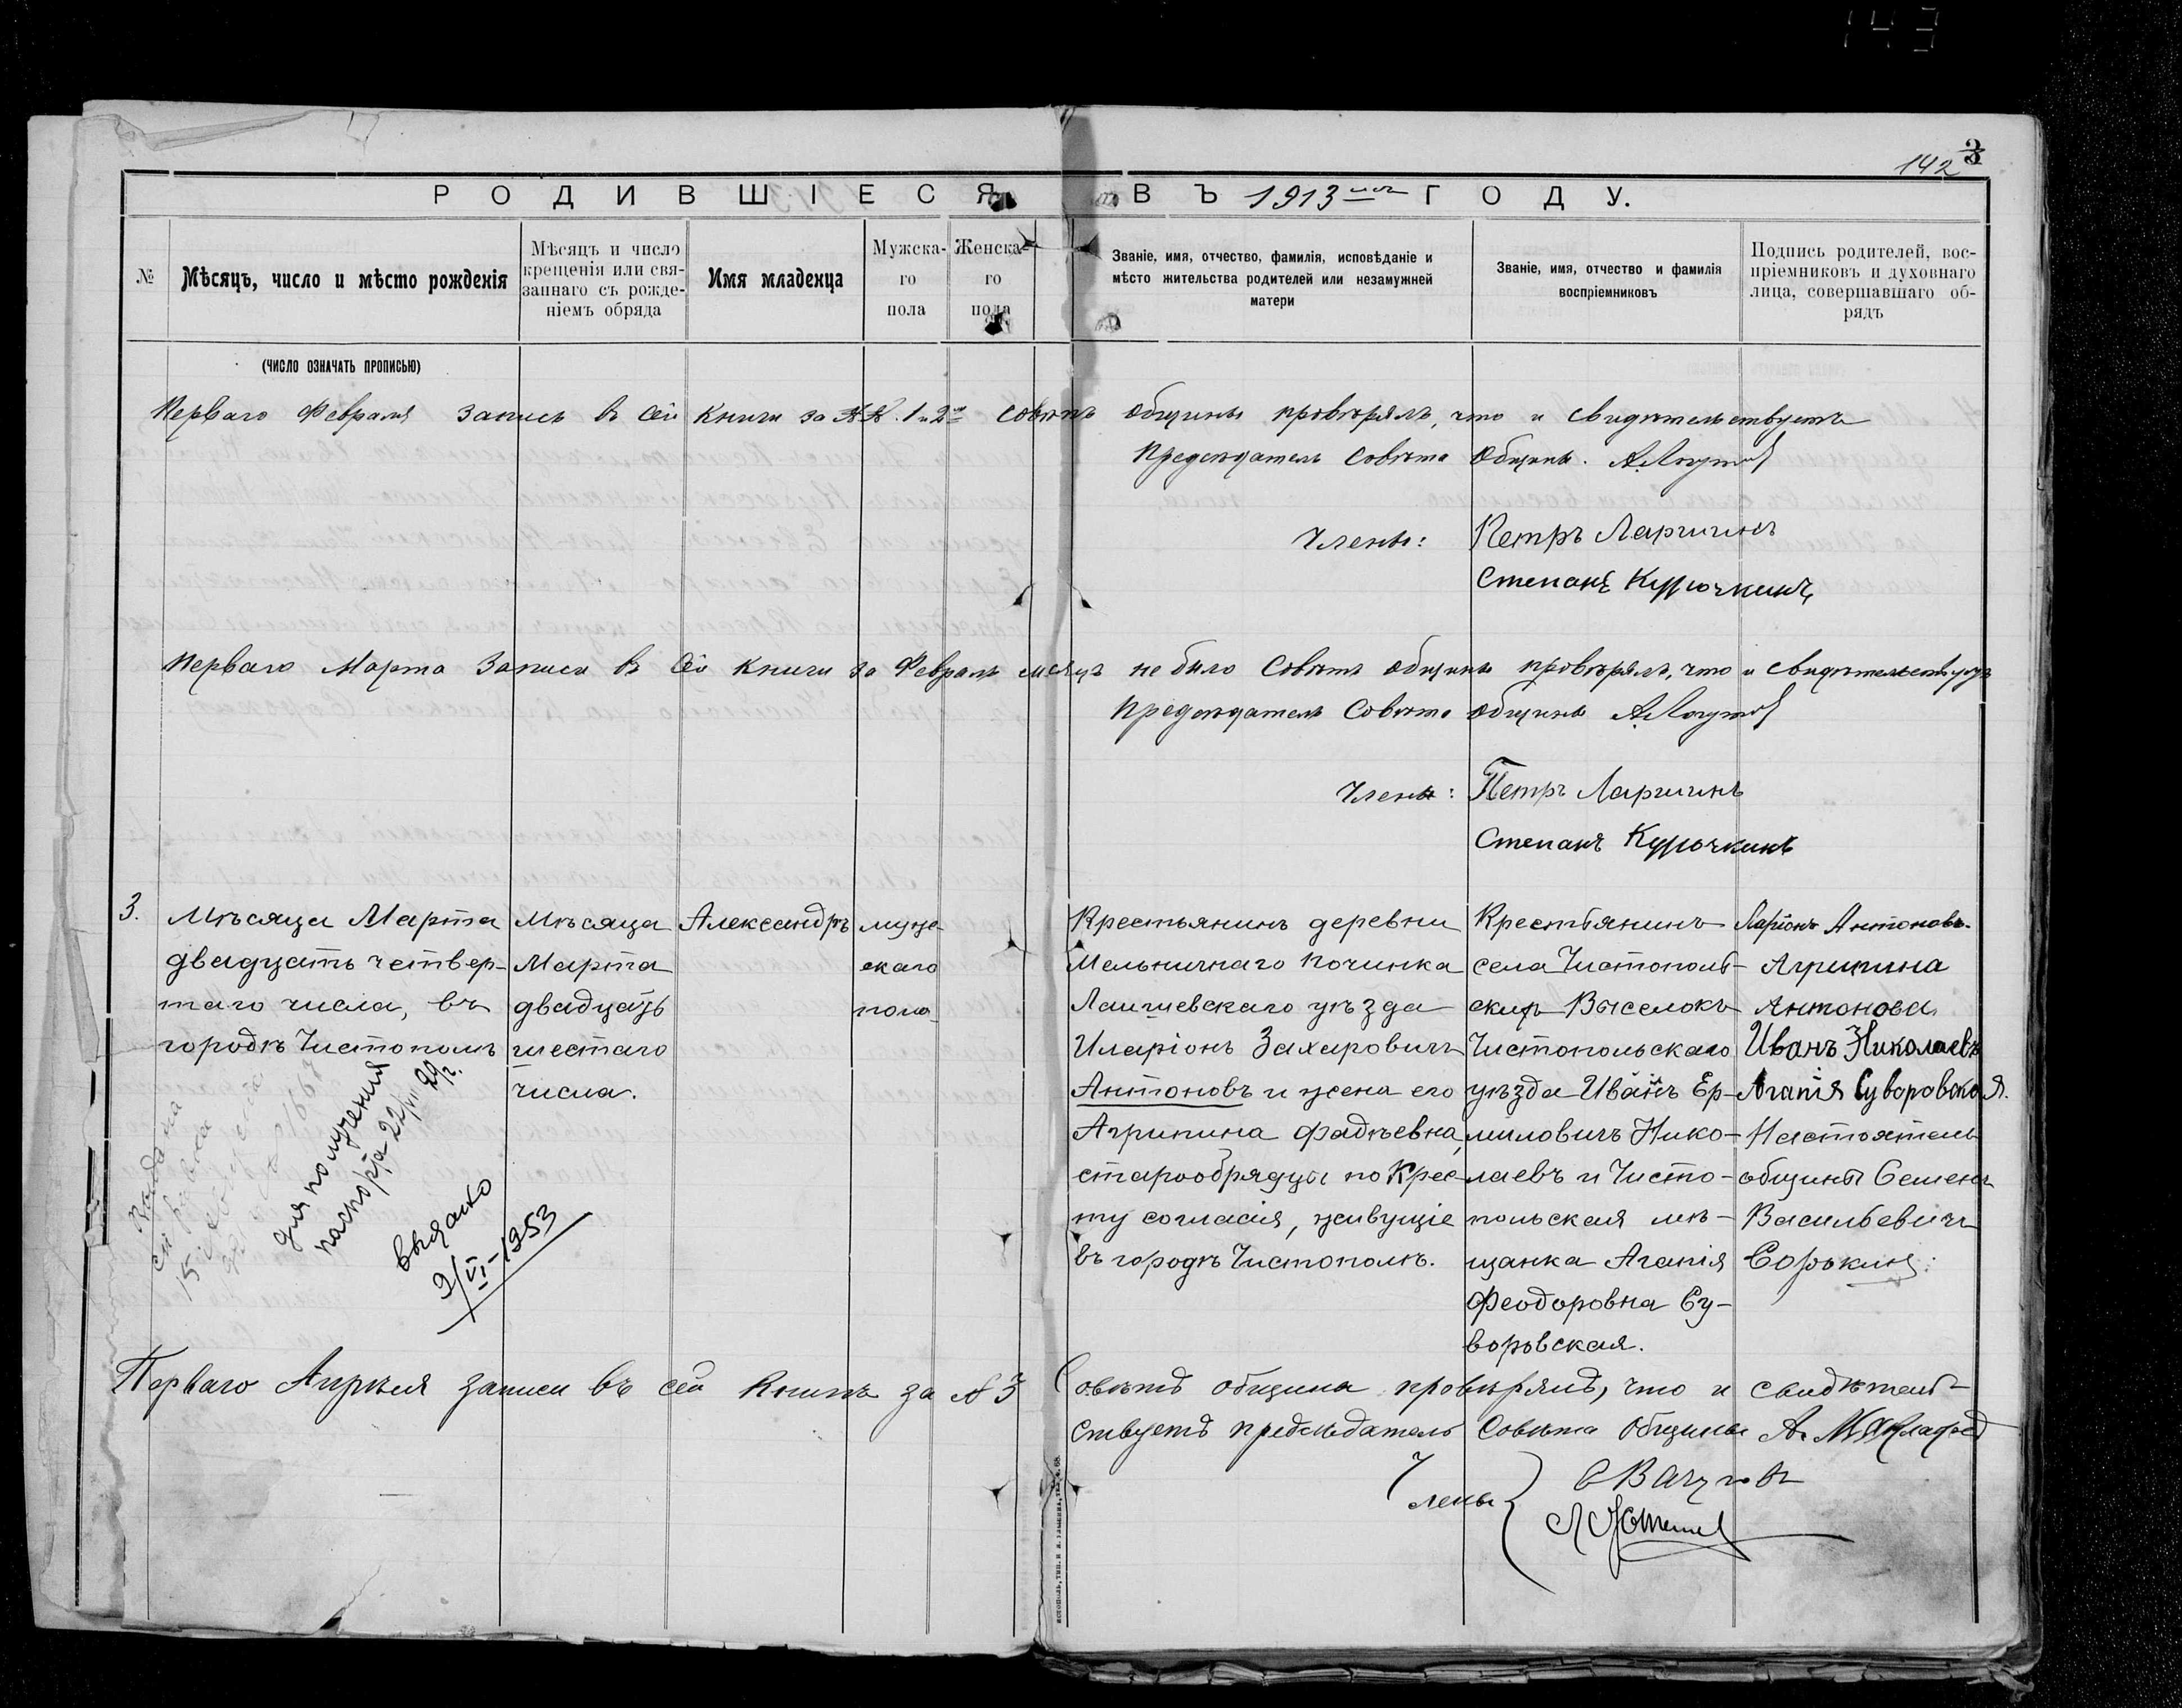 143
142
3
РОДИВШІЕСЯ ВЪ 1913 ГОДУ.
№
Мѣсяцъ, число и мѣсто рожденія
Мѣсяцъ и число
крещенія или свя-
заннаго съ рожде-
ніемъ обряда
Имя младенца
Мужска-
го
пола
Женска-
го
пола
Званіе, имя, отчество, фамилія, исповѣданіе и
мѣсто жительства родителей или незамужней
матери
Званіе, имя, отчество и фамилія
воспріемниковъ
Подпись родителей, вос-
пріемниковъ и духовнаго
лица, совершавшаго об-
рядъ
(ЧИСЛО ОЗНАЧАТЬ ПРОПИСЬЮ)
Перваго Февраля запись въ сей книги за №№ 1 и 2 совѣтъ общины провѣрялъ, что и свидѣтельствуетъ
Предсѣдатель Совѣта Общины.
Члены: Петръ Ларичинъ
Степанъ Курочкинъ
Перваго Марта записи въ сей книги за Февраль мѣсяцъ не было Совѣтъ общины провѣрялъ, что и свидѣтельствуетъ
Предсѣдатель Совѣта общины
Члены: Петръ Ларичинъ
Степанъ Курочкинъ
3.
Мѣсяца Марта
двадцать четвер-
таго числа, въ
городѣ Чистополѣ
Мѣсяца
Марта
двадцать
шестаго
числа.
Александръ
муже-
скаго
пола
Крестьянинъ деревни
Мельничнаго Починка
Лаишевскаго уѣзда
Иларіонъ Захаровичъ
Антоновъ и жена его
Агрипина Фадѣевна,
старообрядцы по Крес-
ту согласія, живущіе
въ городѣ Чистополѣ.
Крестьянинъ
села Чистополь-
скихъ Выселокъ
Чистопольскаго
уѣзда Иванъ Ер-
миловичъ Нико-
лаевъ и Чисто-
польская мѣ-
щанка Агапія
Феодоровна Су-
воровская.
Ларіонъ Антоновъ.
Агрипина
Антонова
Иванъ Николаевъ
Агапія Суворовская.
Настоятель
общины Семенъ
Васильевичъ
Сорокинъ.
Выдана
справка
для получения
паспорта 22/ 29 г.
выдано
9/VI-1953
Перваго Апрѣля записи въ сей книгѣ за № 3 Совѣтъ общины провѣрялъ, что и свидѣтель-
ствуетъ предсѣдатель Совѣта Общины А. Маклаковъ
Члены